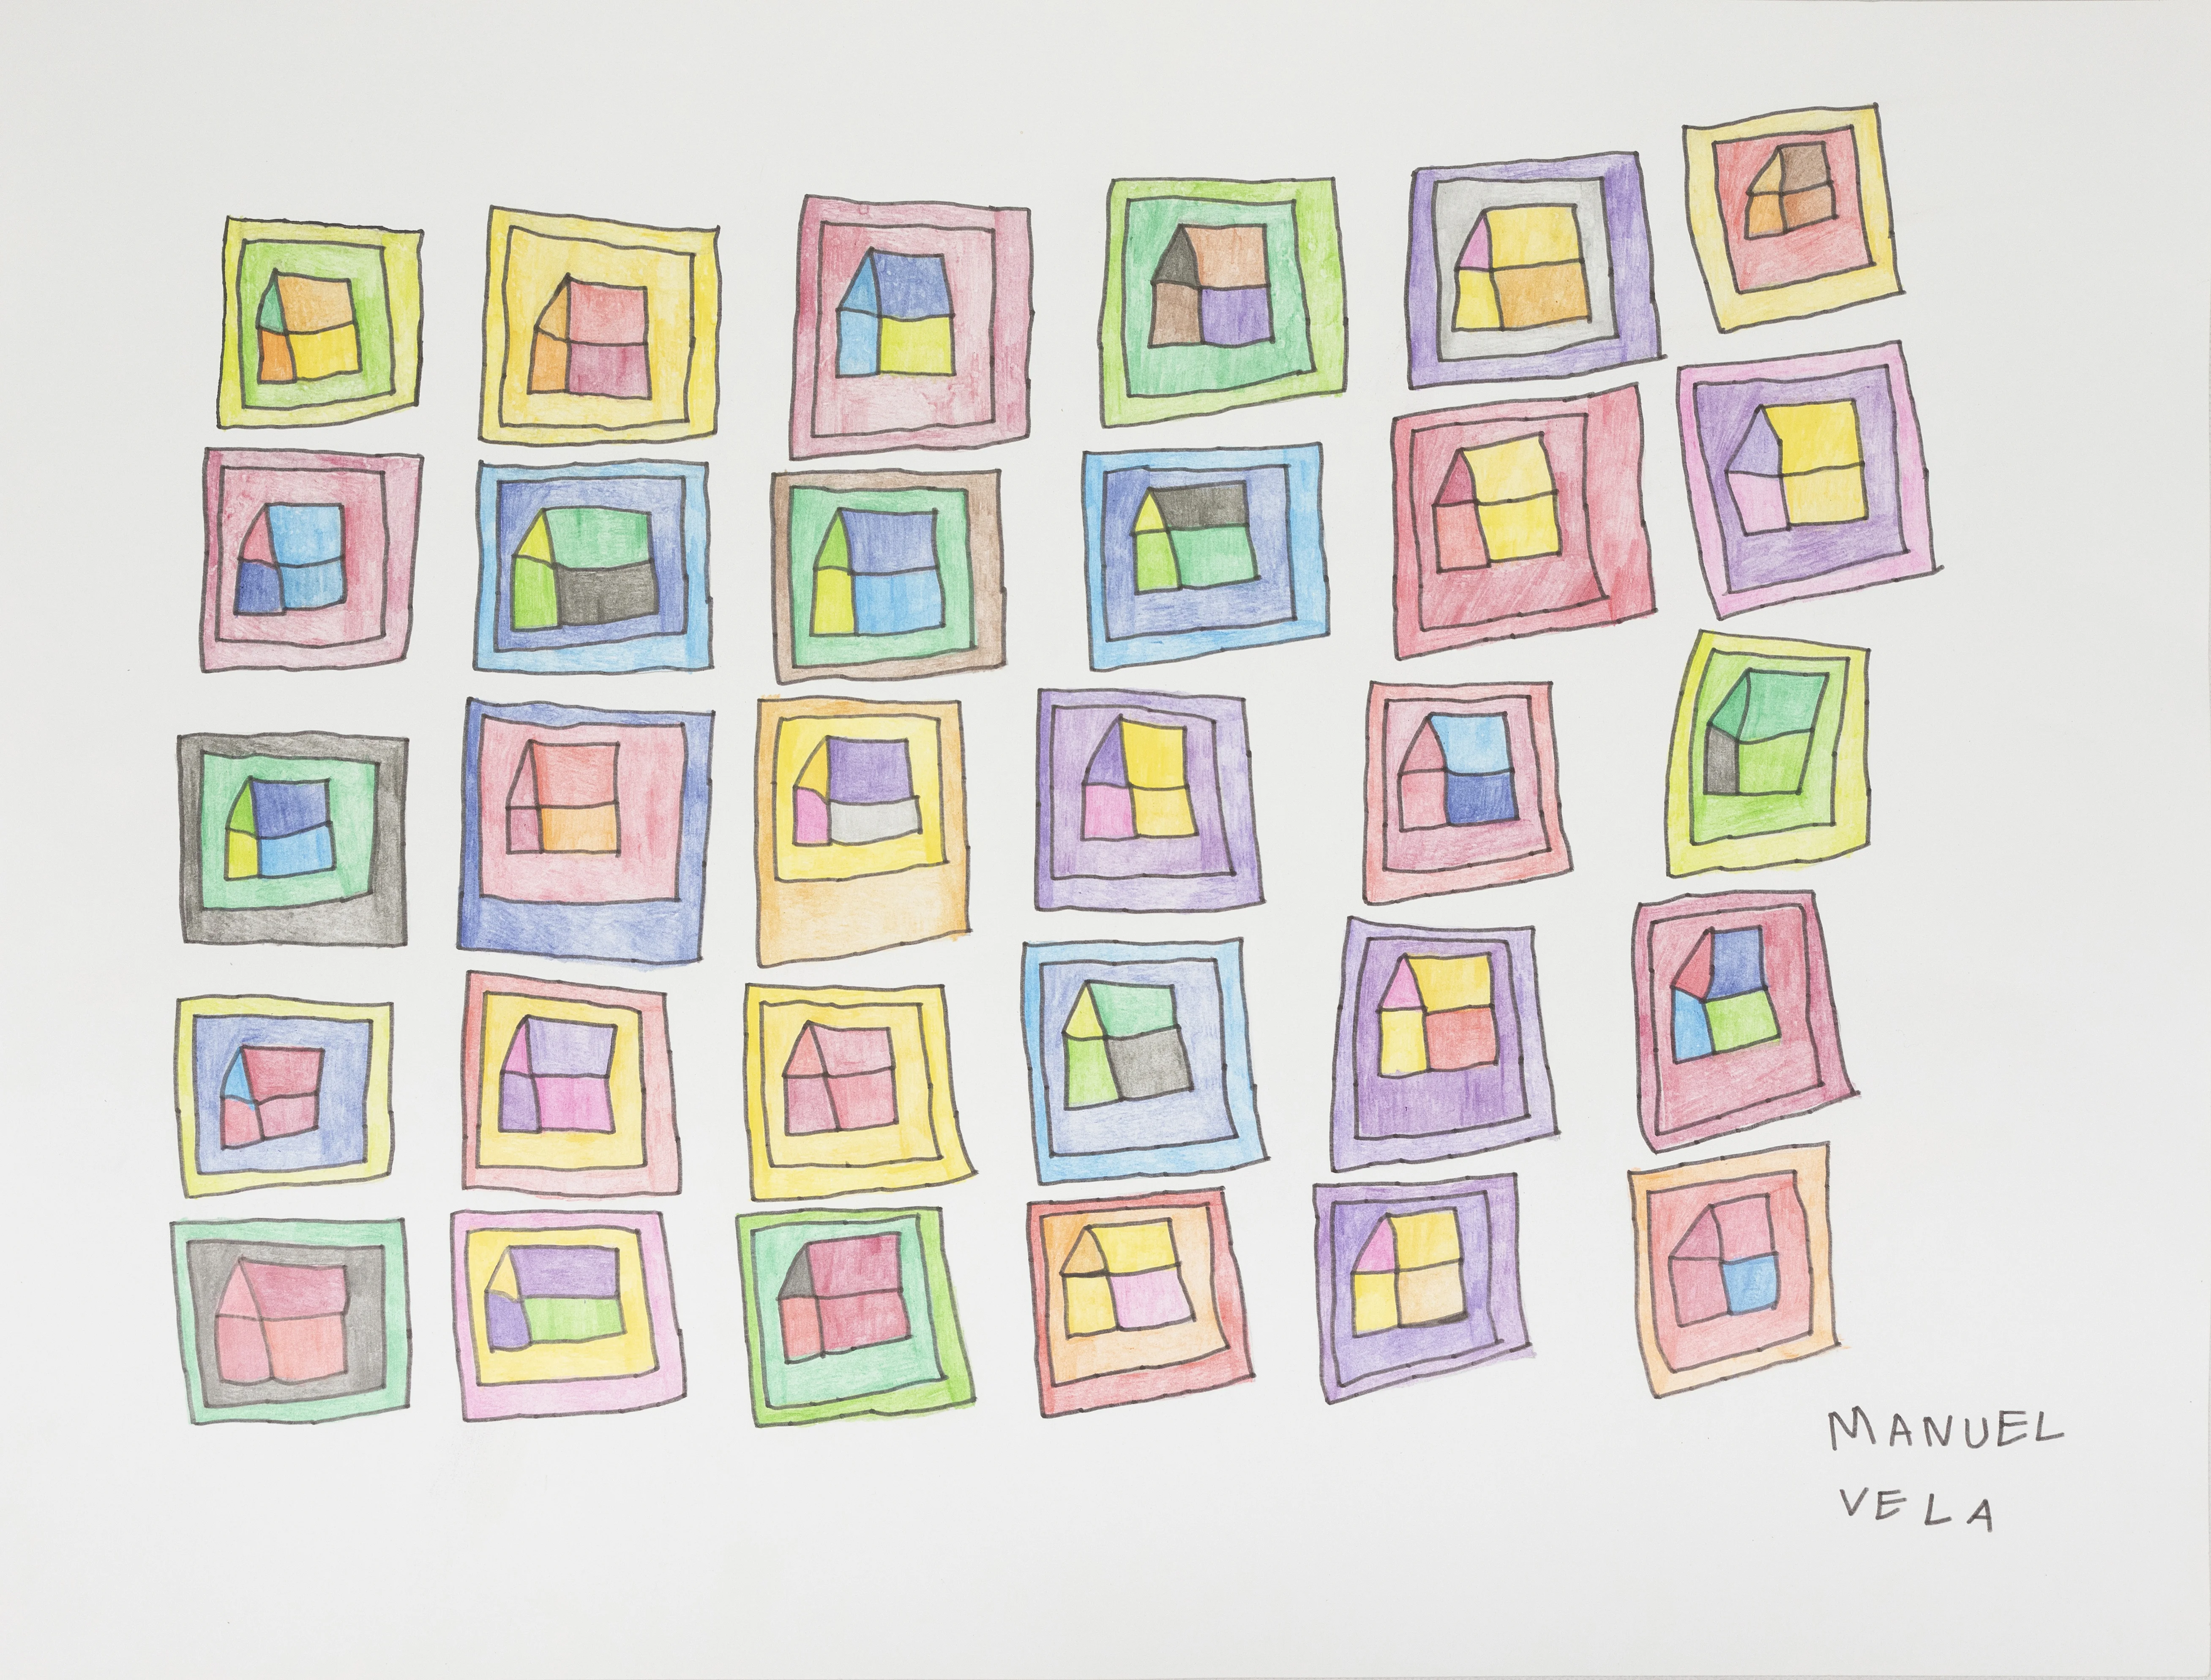 MANUEL
VELA